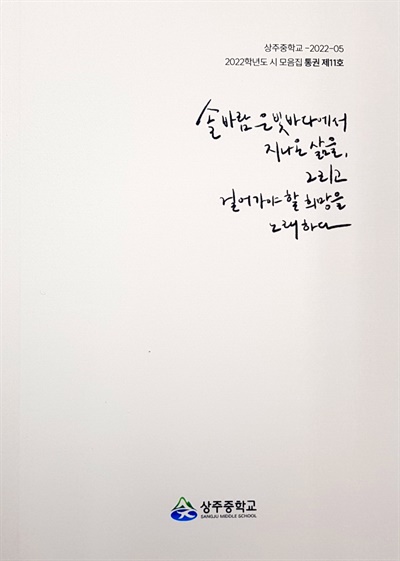 상주중학교 -2022-05
2022학년도 시 모음집 통권 제11호
솔바람 은빛바다에서
지나온 삶을,
그리고
걸어가야 할 희망을
노래하다
상주중학교
SANGJU MIDDLE SCHOOL